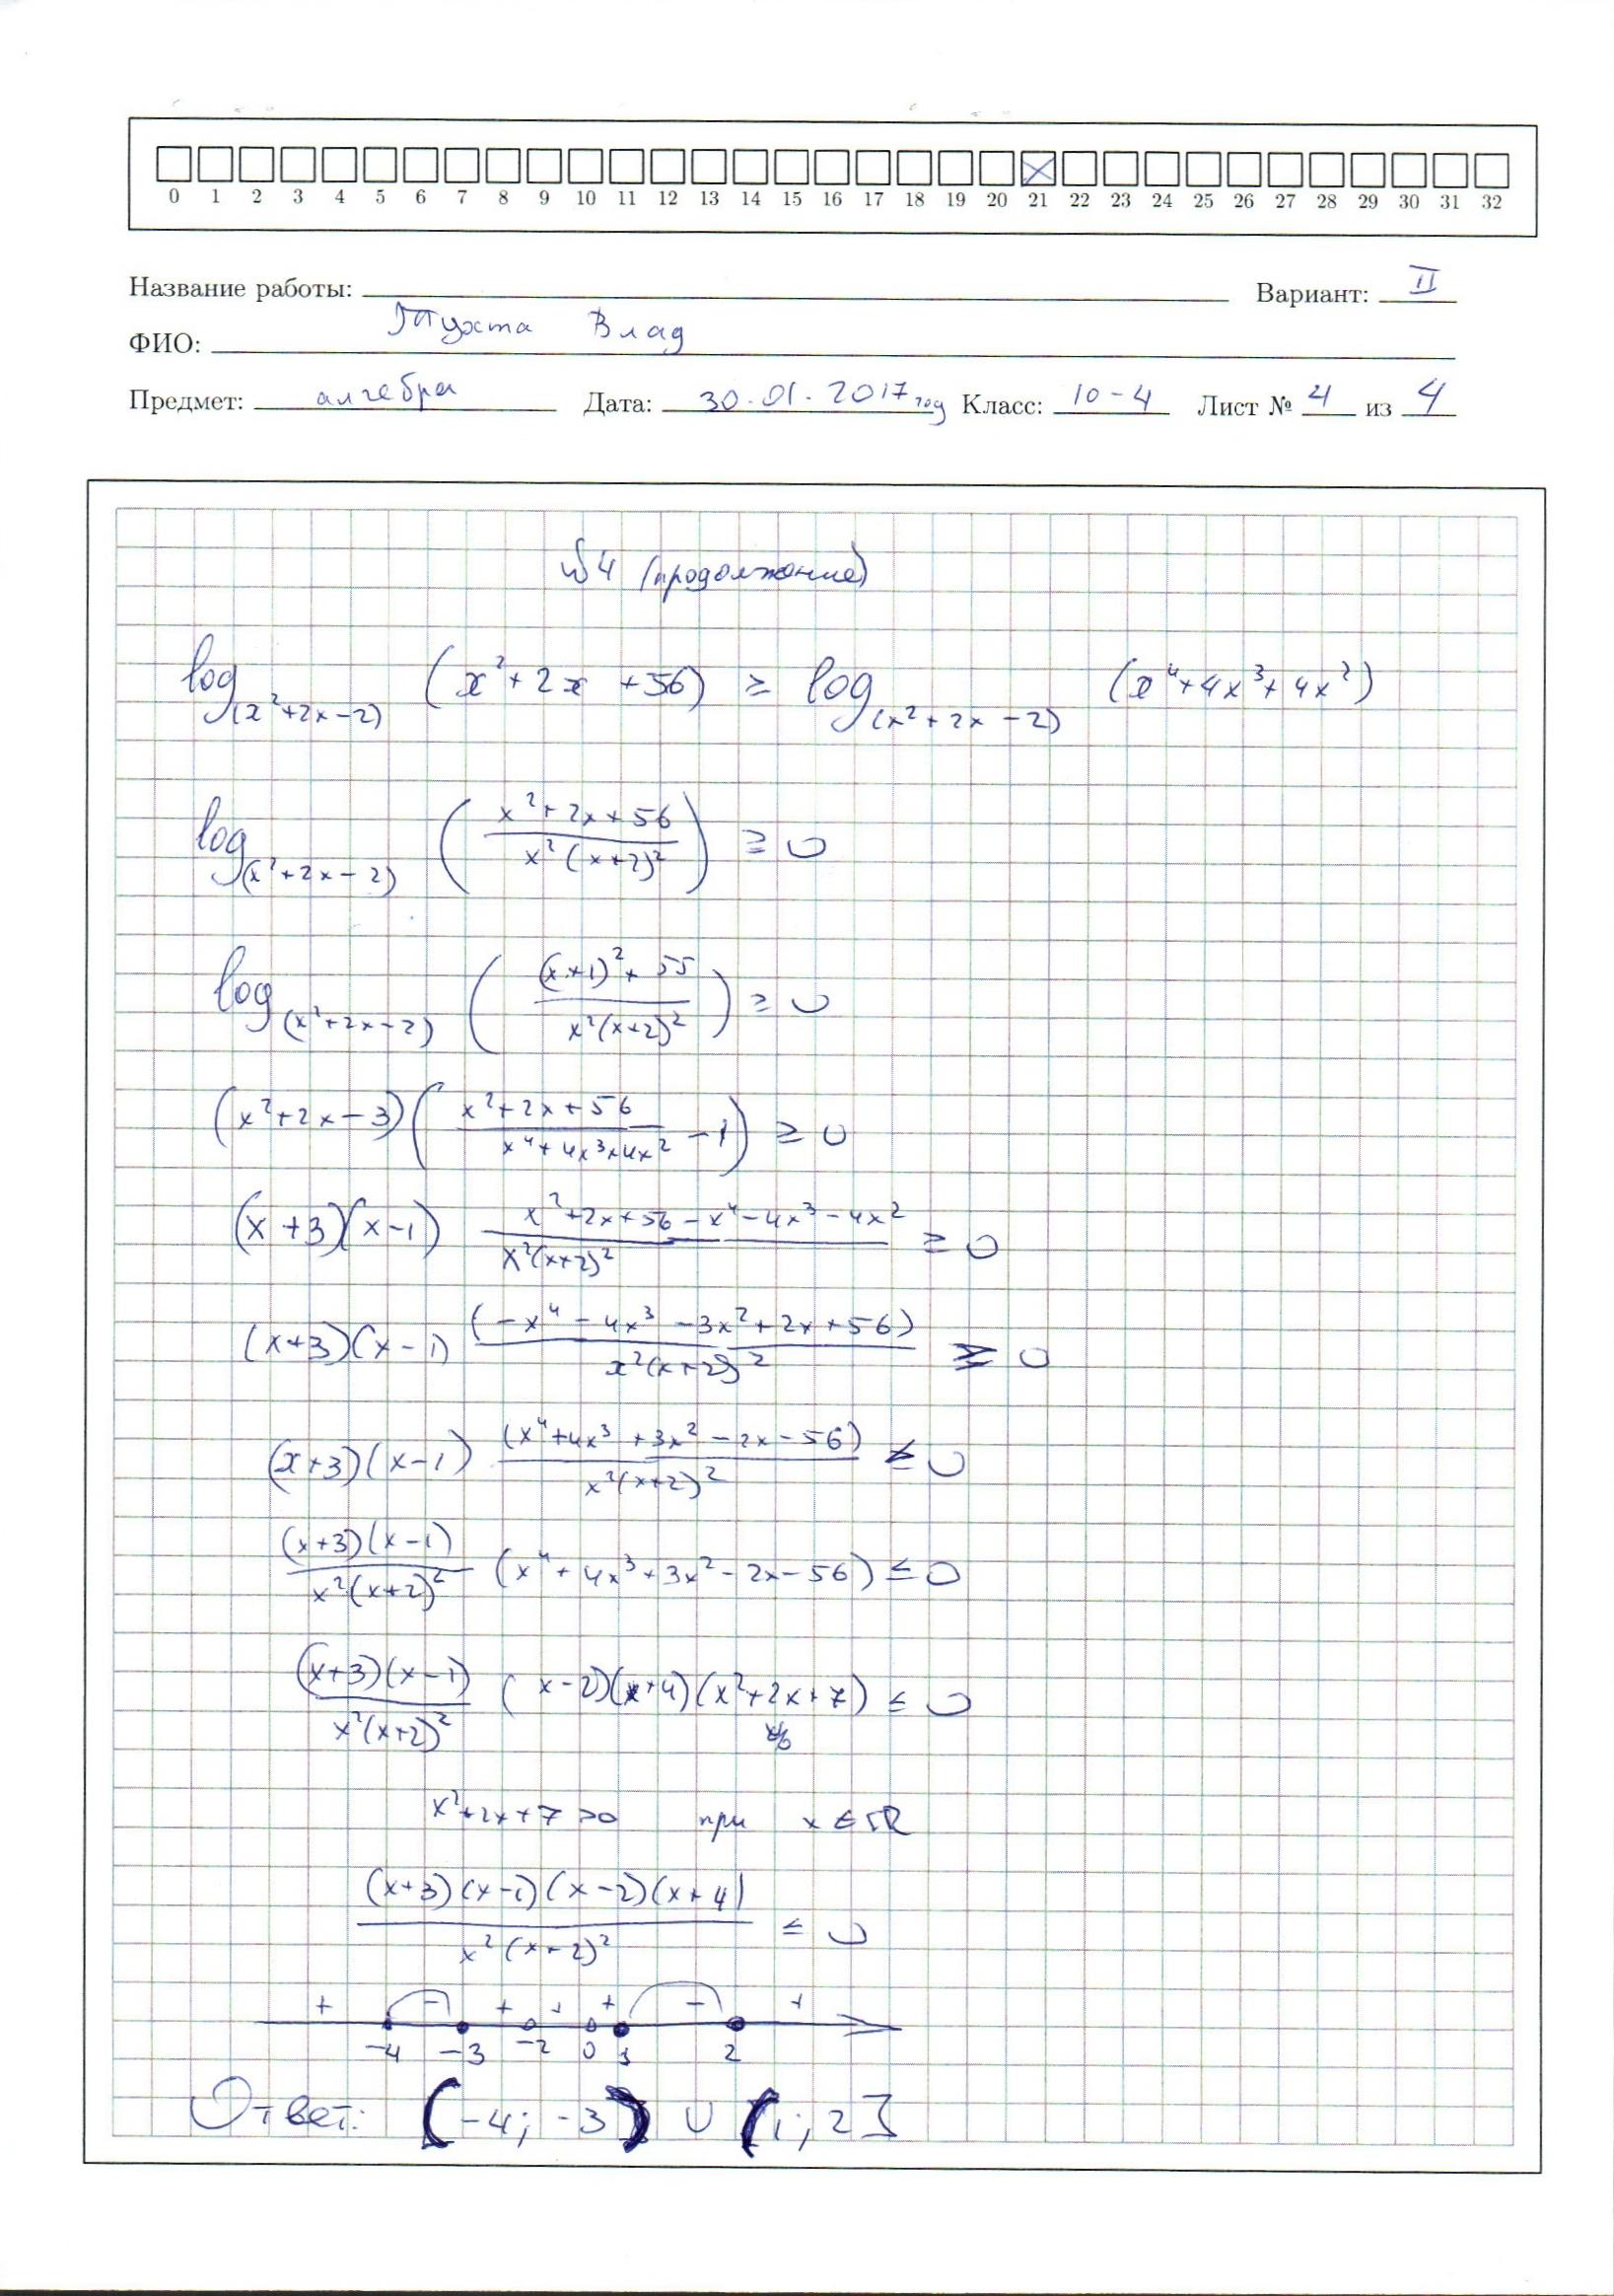 0 1 2 3 4 5 6 7 8 9 10 11 12 13 14 15 16 17 18 19 20 21 22 23 24 25 26 27 28 29 30 31 32
Название работы: Вариант: II
ФИО: Тухта Влад
Предмет: алгебра Дата: 30.01.2017 год Класс: 10-4 Лист № 4 из 4
№4 (продолжение)
log_(x²+2x-2) (x²+2x+56) ≥ log_(x²+2x-2) (x⁴+4x³+4x²)
log_(x²+2x-2) ((x²+2x+56)/(x²(x+2)²)) ≥ 0
log_(x²+2x-2) (((x+1)²+55)/(x²(x+2)²)) ≥ 0
(x²+2x-3)((x²+2x+56)/(x⁴+4x³+4x²) - 1) ≥ 0
(x+3)(x-1) (x²+2x+56-x⁴-4x³-4x²)/(x²(x+2)²) ≥ 0
(x+3)(x-1) (-x⁴-4x³-3x²+2x+56)/(x²(x+2)²) ≥ 0
(x+3)(x-1) (x⁴+4x³+3x²-2x-56)/(x²(x+2)²) ≤ 0
(x+3)(x-1)/(x²(x+2)²) (x⁴+4x³+3x²-2x-56) ≤ 0
(x+3)(x-1)/(x²(x+2)²) (x-2)(x+4)(x²+2x+7) ≤ 0
x²+2x+7 >0 при x ∈ ℝ
(x+3)(x-1)(x-2)(x+4)/(x²(x+2)²) ≤ 0
+ - + + + - +
-4 -3 -2 0 1 2
Ответ: (-4; -3) ∪ (1; 2]